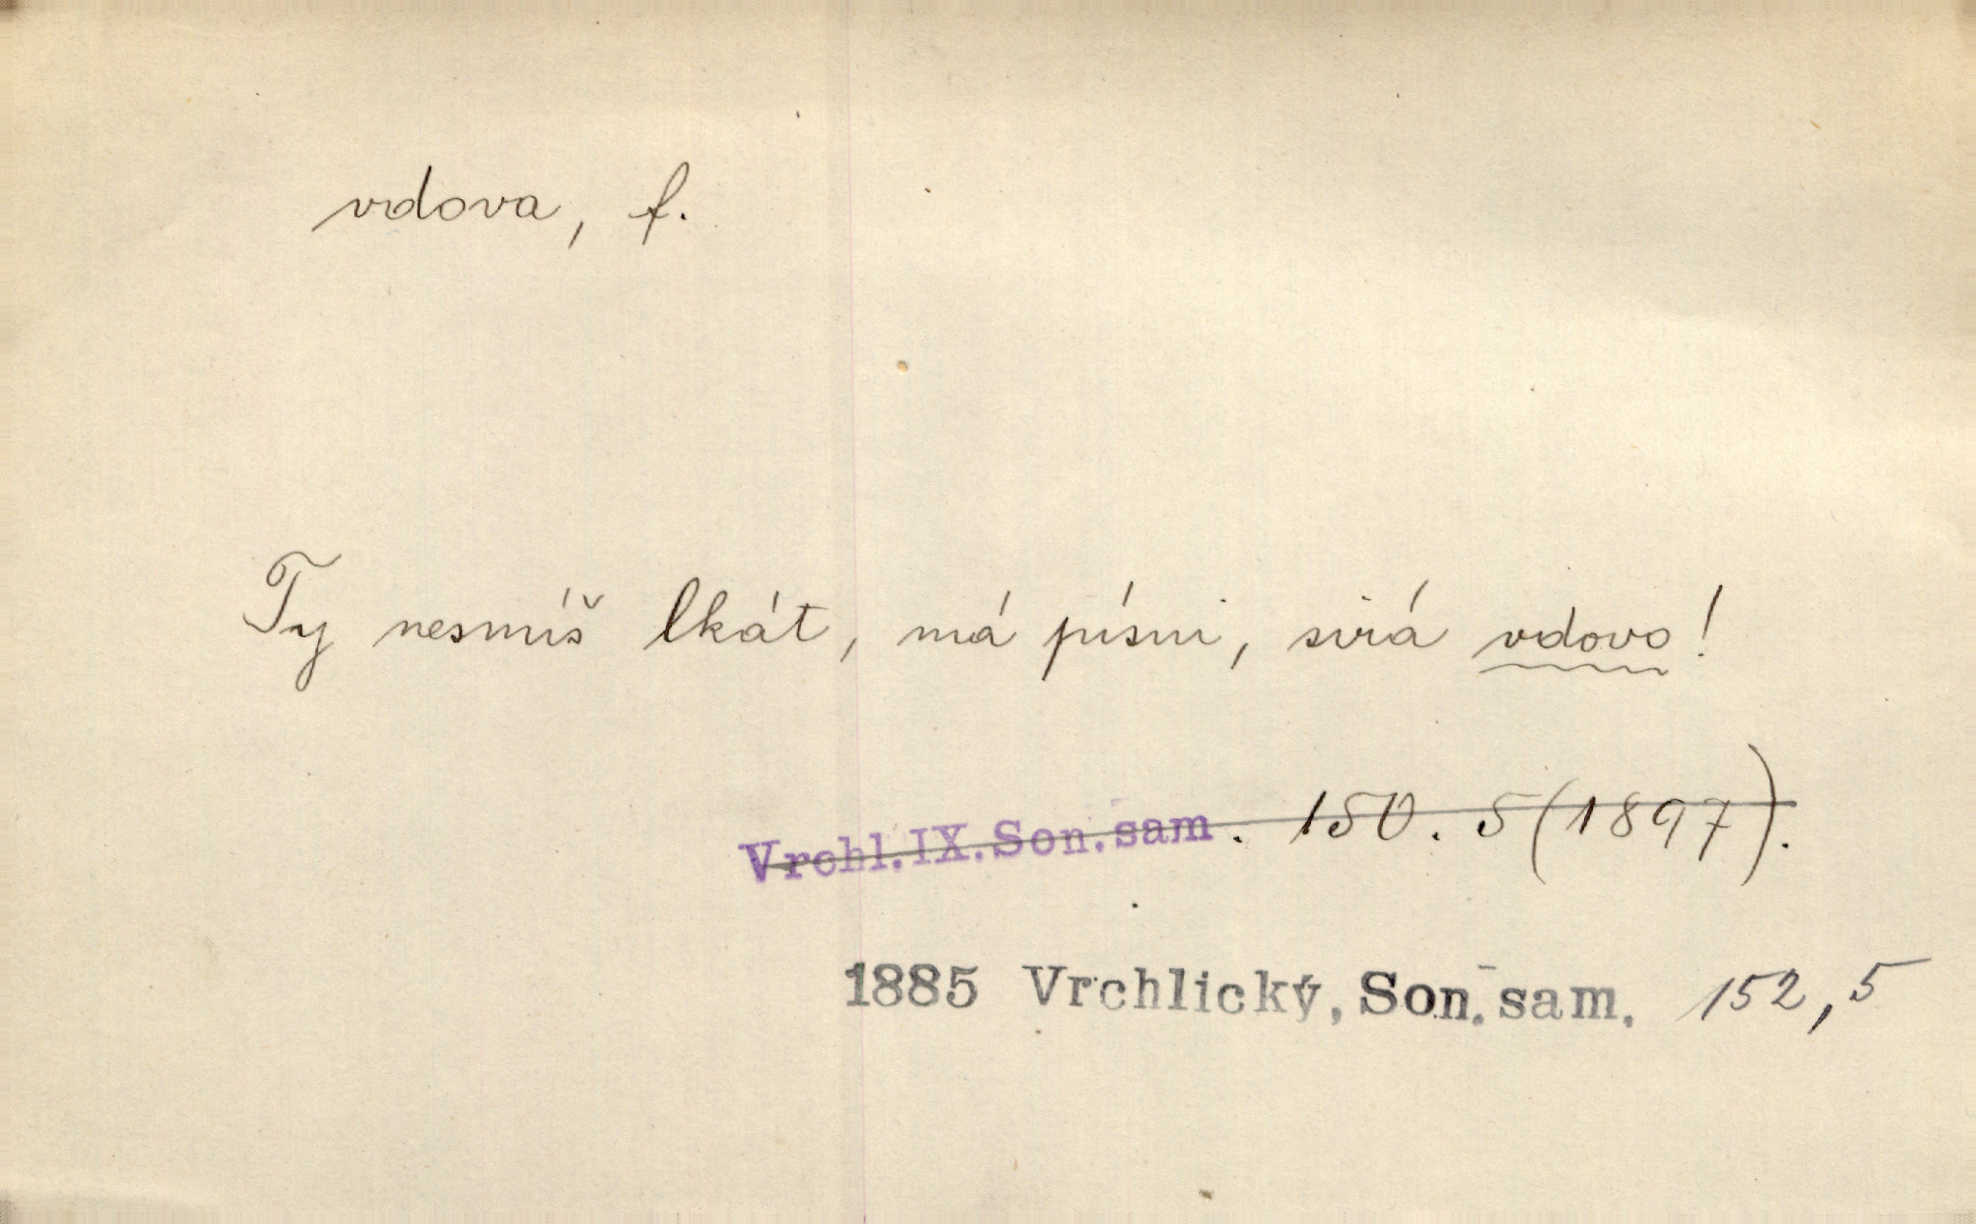 vdova, f.
Ty nesmíš lkát, má písni, sirá vdovo!
Vrchl.IX.Son.sam. 150. 5 (1897).
1885 Vrchlický, Son. sam. 152, 5